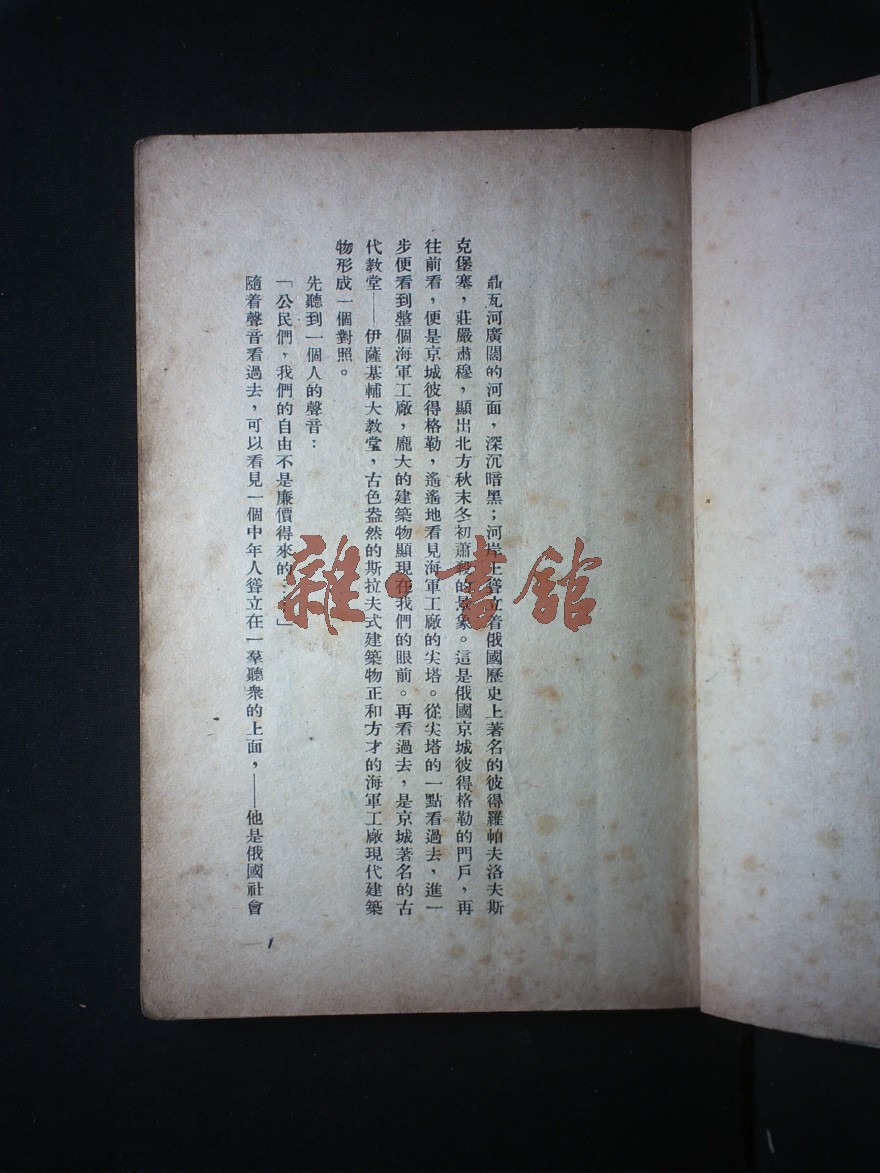 鼐瓦河廣闊的河面，深沉暗黑；河岸上聳立着俄國歷史上著名的彼得羅帕夫洛夫斯
克堡塞，莊嚴肅穆，顯出北方秋末冬初蕭殺的景象。這是俄國京城彼得格勒的門戶，再
往前看，便是京城彼得格勒，遙遙地看見海軍工廠的尖塔。從尖塔的一點看過去，進一
步便看到整個海軍工廠，龐大的建築物顯現在我們的眼前。再看過去，是京城著名的古
代教堂——伊薩基輔大教堂，古色盎然的斯拉夫式建築物正和方才的海軍工廠現代建築
物形成一個對照。
先聽到一個人的聲音：
「公民們，我們的自由不是廉價得來的……」
隨着聲音看過去，可以看見一個中年人聳立在一羣聽衆的上面，——他是俄國社會
1
雜·書館